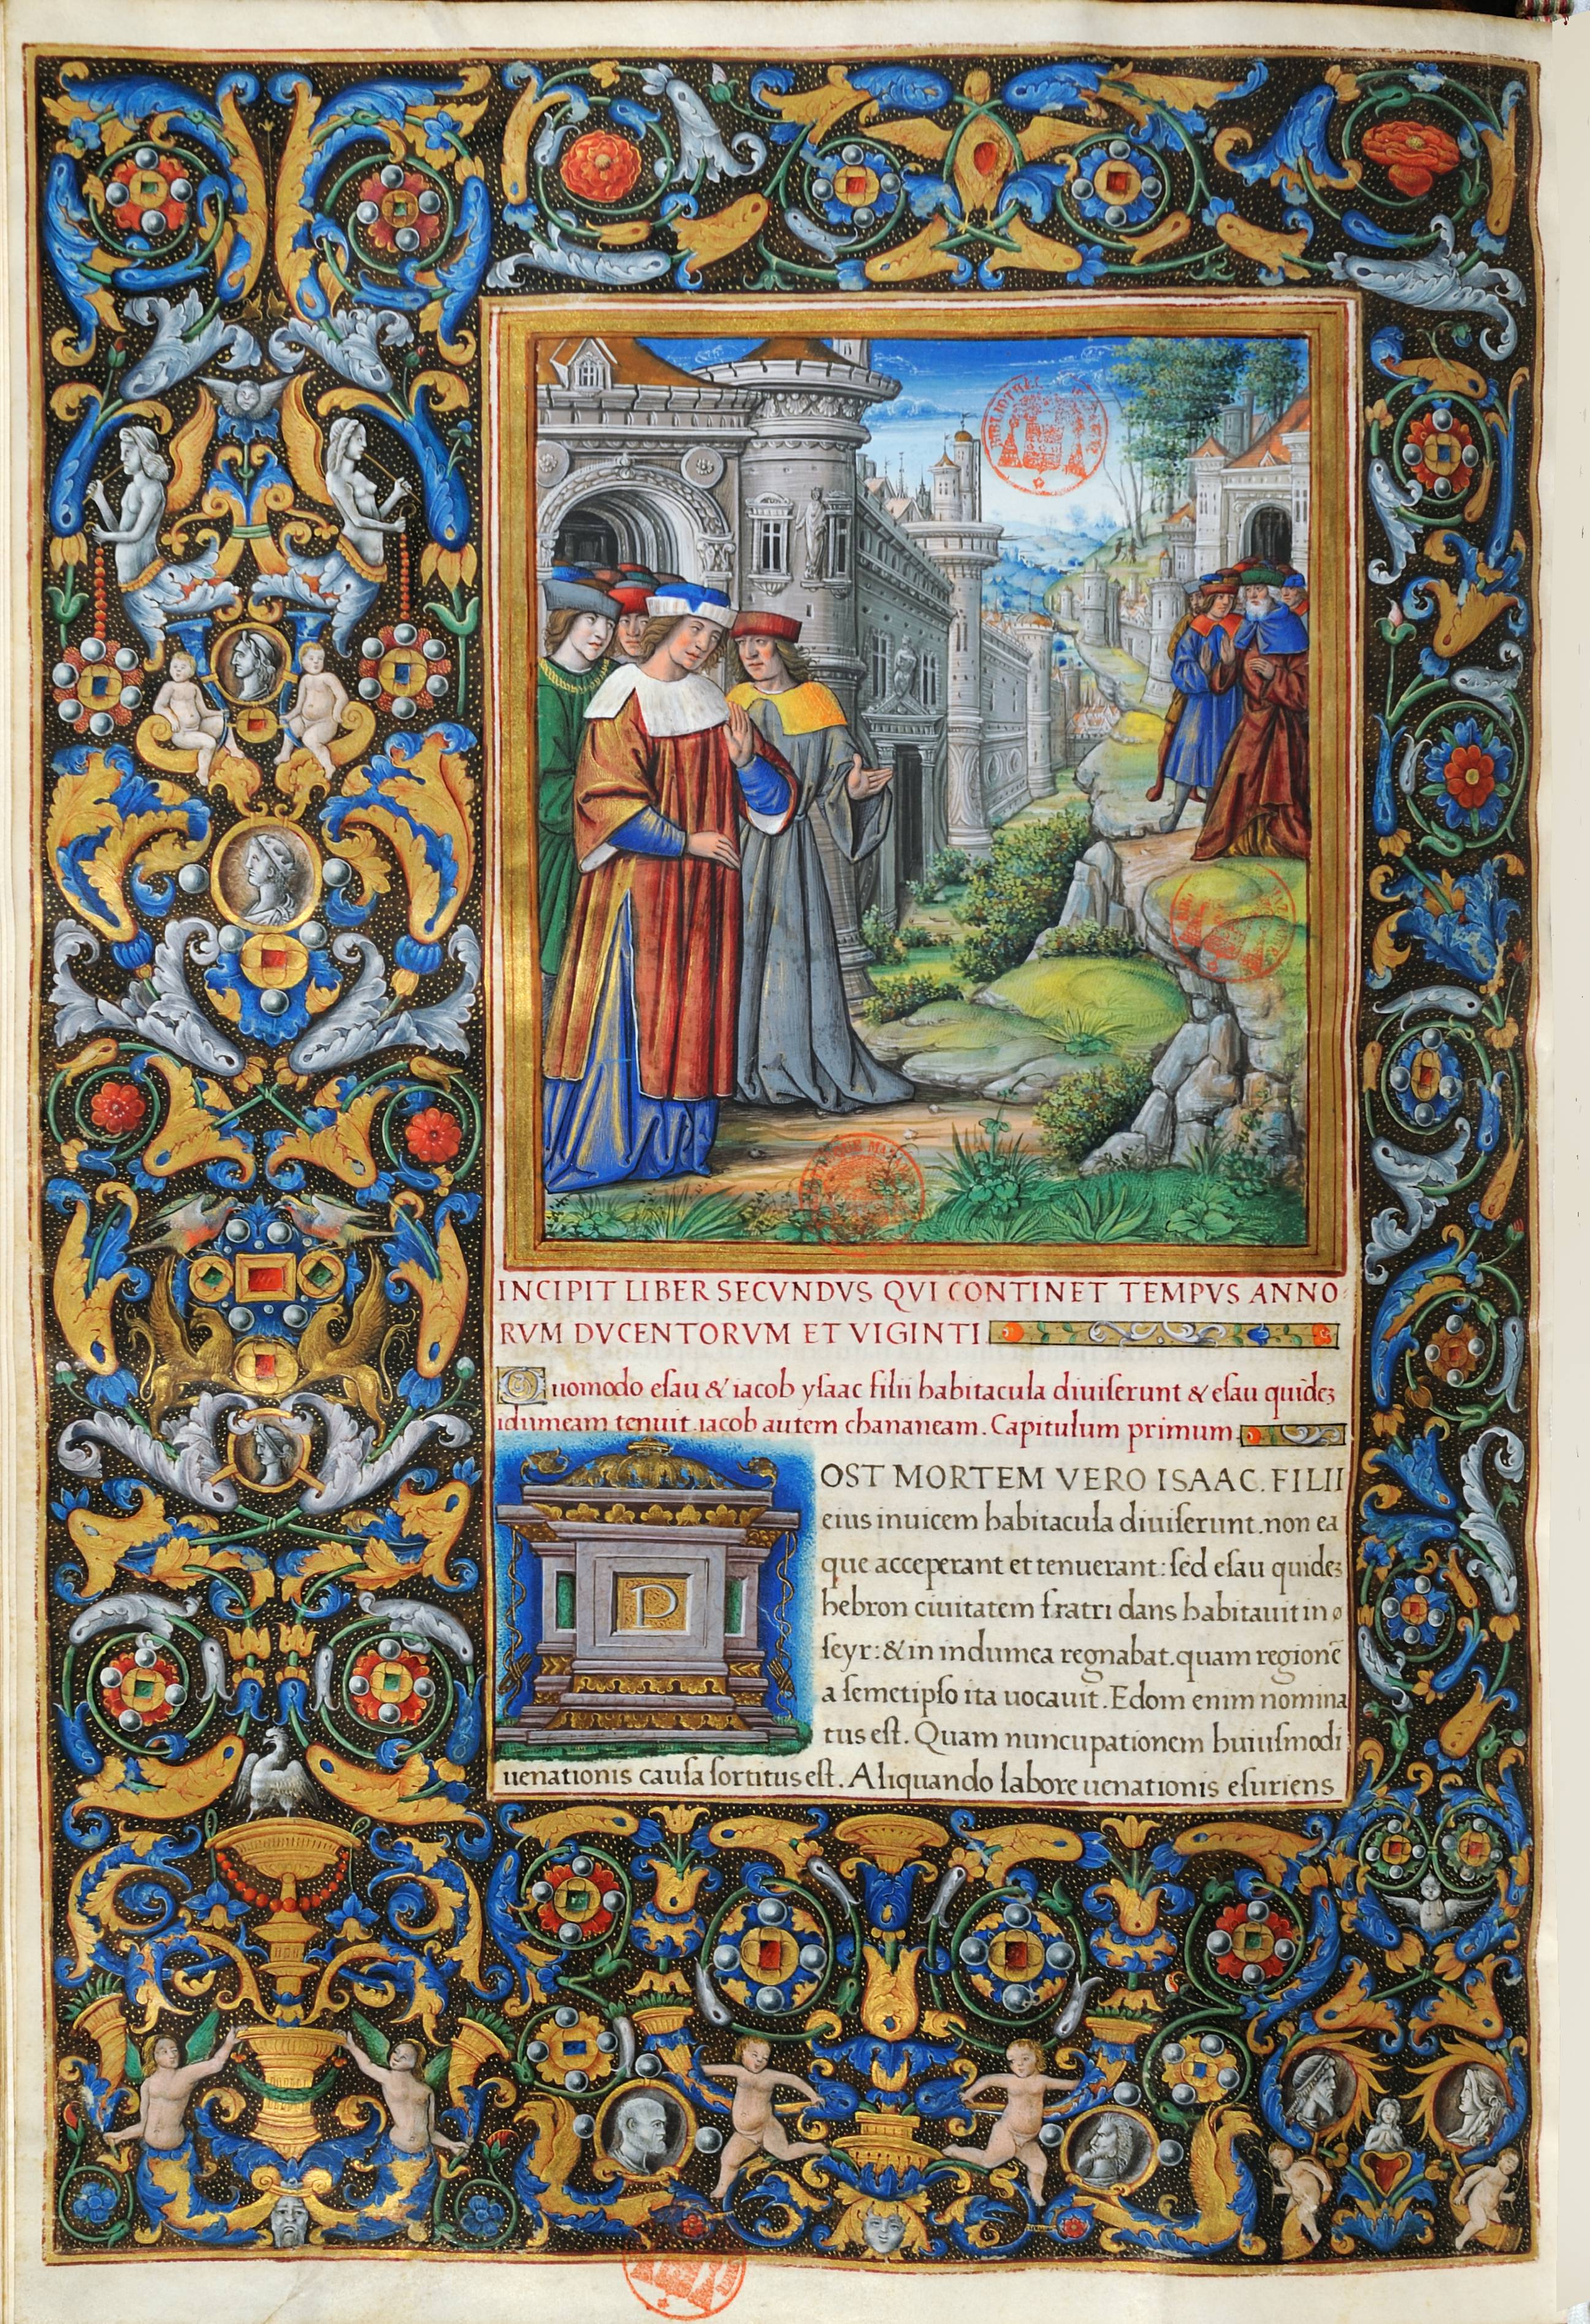 INCIPIT LIBER SECVNDVS QVI CONTINET TEMPVS ANNO
RVM DVCENTORVM ET VIGINTI
Quomodo esau & iacob ysaac filii habitacula diuiserunt & esau quidez
idumeam tenuit. iacob autem chananeam. Capitulum primum.
P
OST MORTEM VERO ISAAC. FILII
eius inuicem habitacula diuiserunt. non ea
que acceperant et tenuerant: sed esau quidez
hebron ciuitatem fratri dans habitauit in
seyr: & in indumea regnabat. quam regionē
a semetipso ita uocauit. Edom enim nomina
tus est. Quam nuncupationem huiusmodi
uenationis causa sortitus est. Aliquando labore uenationis esuriens